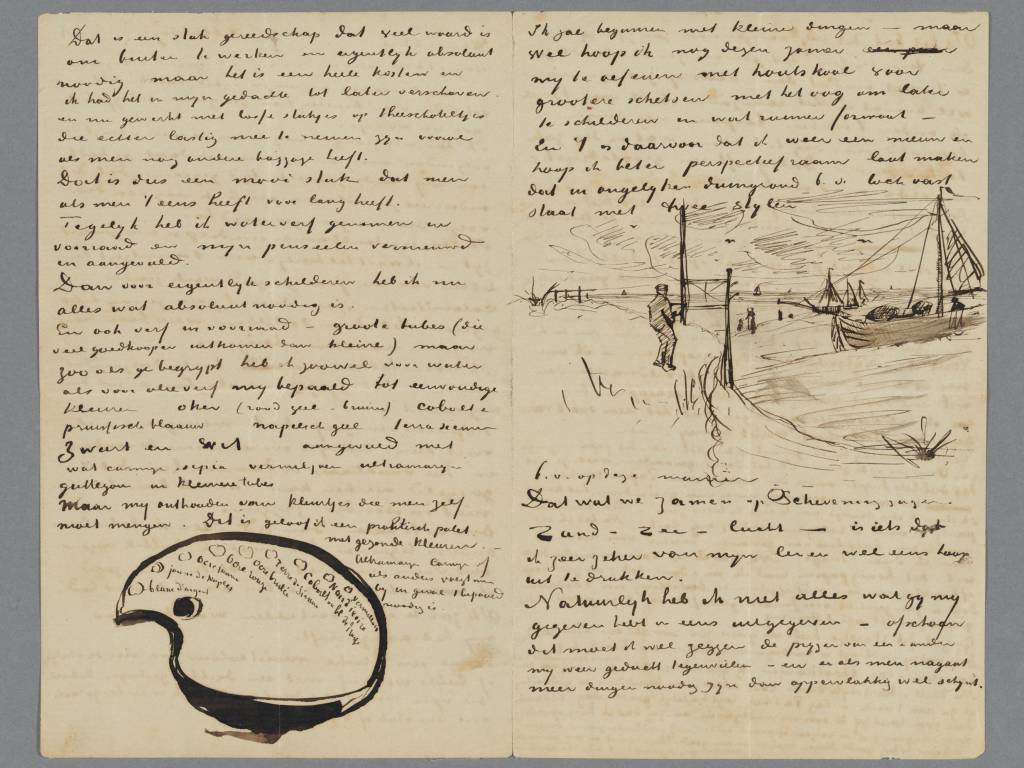 Dat is een stuk gereedschap dat veel waard is
om buiten te werken en eigentlyk absoluut
noodig maar het is een heele kosten en
ik had het in myn gedachte tot later verschoven.
en nu gewerkt met losse stukjes op theeschoteltjes
die echter lastig mee te nemen zyn vooral
als men nog andere baggage heeft.
Dat is dus een mooi stuk dat men
als men 't eens heeft voor lang heeft.
Tegelyk heb ik waterverf genomen in
voorraad en myn penseelen vernieuwd
en aangevuld.
Dan voor eigentlyk schilderen heb ik nu
alles wat absoluut noodig is.
En ook verf in voorraad – groote tubes (die
veel goedkooper uitkomen dan kleine) maar
zoo als ge begrypt heb ik zoowel voor water
als voor olieverf my bepaald tot eenvoudige
kleuren oker (rood geel - bruin) cobolt &
pruissisch blaauw napelsch geel terra sienna
Zwart en Wit aangevuld met
wat carmyn sepia vermiljoen ultramaryn
guttegom in kleinere tubes
Maar my onthouden van kleurtjes die men zelf
moet mengen. Dit is geloof ik een praktisch palet
met gezonde kleuren. –
Ultramaryn Carmyn of
als anders voegt men
by in geval stepvoed
noodig is
blanc d'argent
jaune de Naples
ocre jaune
ocre rouge
ocre brulée
Terre de Sienne
Cobalt
bleu de Prusse
Noir
Sepia
vermillon
Ik zal beginnen met kleine dingen – maar
wel hoop ik nog dezen zomer
my te oefenen met houtskool voor
grootere schetsen met het oog om later
te schilderen in wat ruimer formaat –
En 't is daarvoor dat ik weer een nieuw en
hoop ik beter perspectiefraam laat maken
dat in ongelyken duingrond b.v. toch vast
staat met twee stylen
b.v. op deze manier
Dat wat we zamen op Schevening zagen
Zand – zee – lucht – is iets dat
ik zeer zeker van myn leven wel eens hoop
uit te drukken.
Natuurlyk heb ik niet alles wat gy my
gegeven hebt in eens uitgegeven – ofschoon
dit moet ik wel zeggen de pryzen van een & ander
my weer geducht tegenvielen – en er als men nagaat
meer dingen noodig zyn dan oppervlakkig wel schynt.